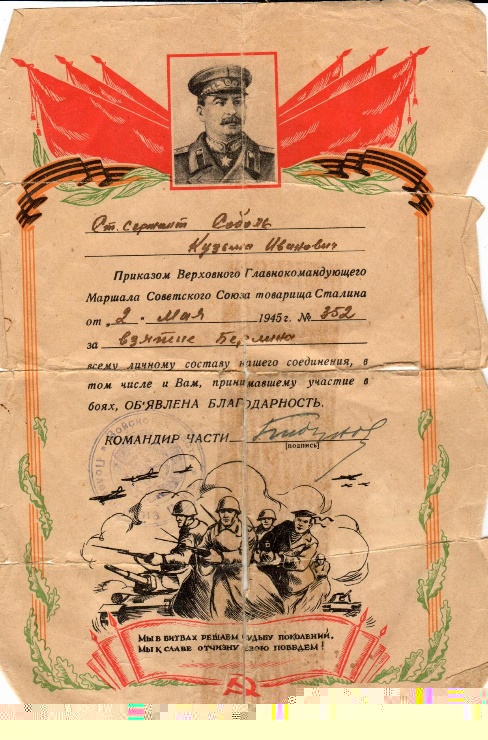 Ст. сержант Соболь
Кузьма Иванович
Приказом Верховного Главнокомандующего
Маршала Советского Союза товарища Сталина
от „2. мая 1945 г. № 352
за взятие Берлина
всему личному составу нашего соединения, в
том числе и Вам, принимавшему участие в
боях, ОБ'ЯВЛЕНА БЛАГОДАРНОСТЬ.
КОМАНДИР ЧАСТИ
[подпись]
Мы в битвах решаем судьбу поколений,
Мы к славе отчизну свою поведем!